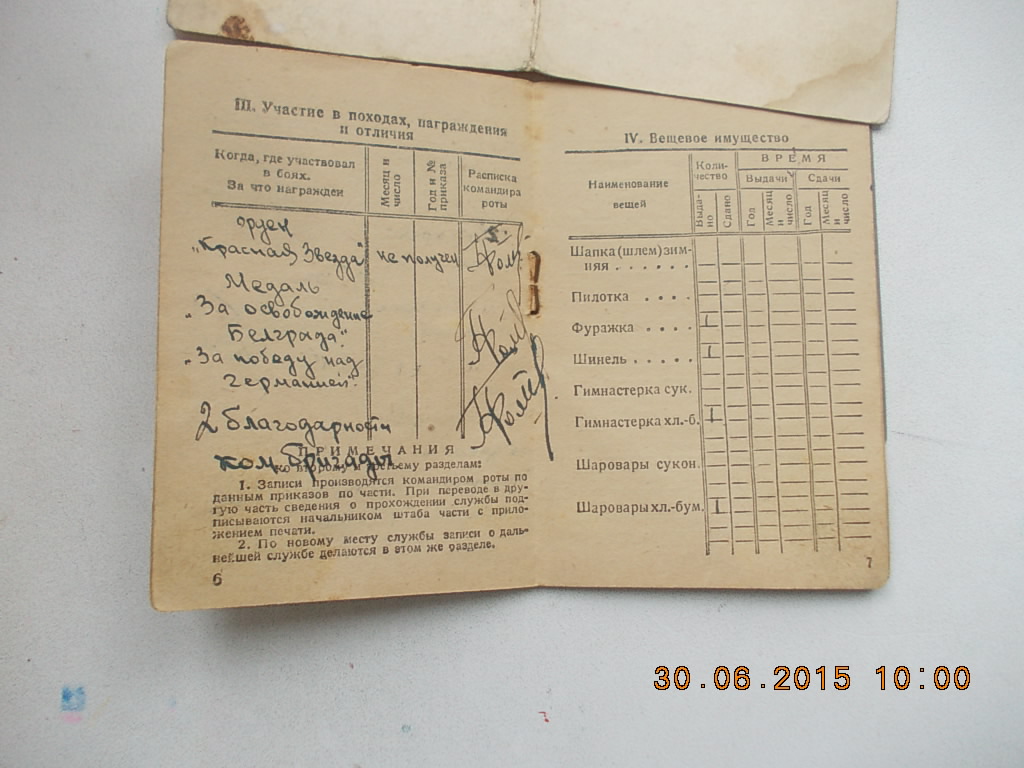 III. Участие в походах, награждения
и отличия
Когда, где участвовал
в боях.
За что награжден
Месяц и
число
Год и №
приказа
Расписка
командира
роты
орден
„Красная Звезда" не получен
Медаль
„За освобождение
Белграда".
„За победу над
Германией".
2 благодарности
ком. бригады
ПРИМЕЧАНИЯ
ко второму и третьему разделам:
1. Записи производятся командиром роты по
данным приказов по части. При переводе в дру-
гую часть сведения о прохождении службы под-
писываются начальником штаба части с прило-
жением печати.
2. По новому месту службы записи о даль-
нейшей службе делаются в этом же разделе.
6
IV. Вещевое имущество
Наименование
вещей
Коли-
чество
ВРЕМЯ
Выдачи
Сдачи
Выда-
но
Сдано
Год
Месяц
и
число
Год
Месяц
и
число
Шапка (шлем) зим-
няя . . . . . .
Пилотка . . . .
Фуражка . . . .
1
Шинель . . . . .
1
Гимнастерка сук.
Гимнастерка хл.-б.
1
Шаровары сукон.
Шаровары хл.-бум.
1
7
30.06.2015 10:00